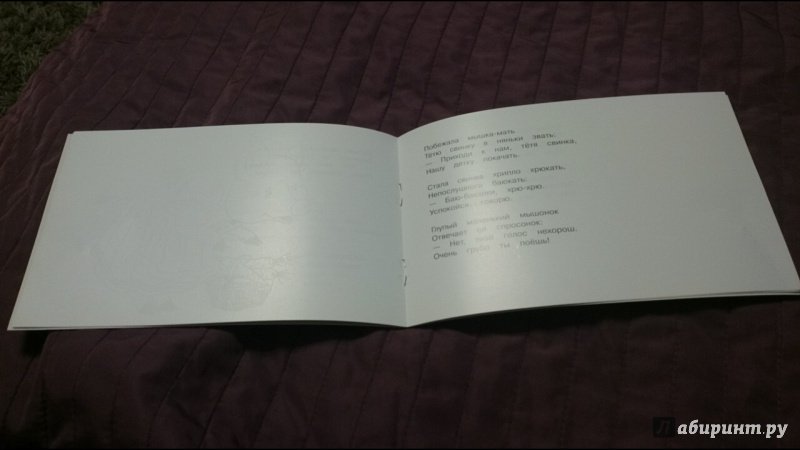 Побежала мышка-мать
Тётю свинку в няньки звать:
— Приходи к нам, тётя свинка,
Нашу детку покачать.
Стала свинка хрипло хрюкать,
Непослушного баюкать:
— Баю-баюшки, хрю-хрю.
Успокойся, говорю.
Глупый маленький мышонок
Отвечает ей спросонок:
— Нет, твой голос нехорош.
Очень грубо ты поёшь!
Лабиринт.ру